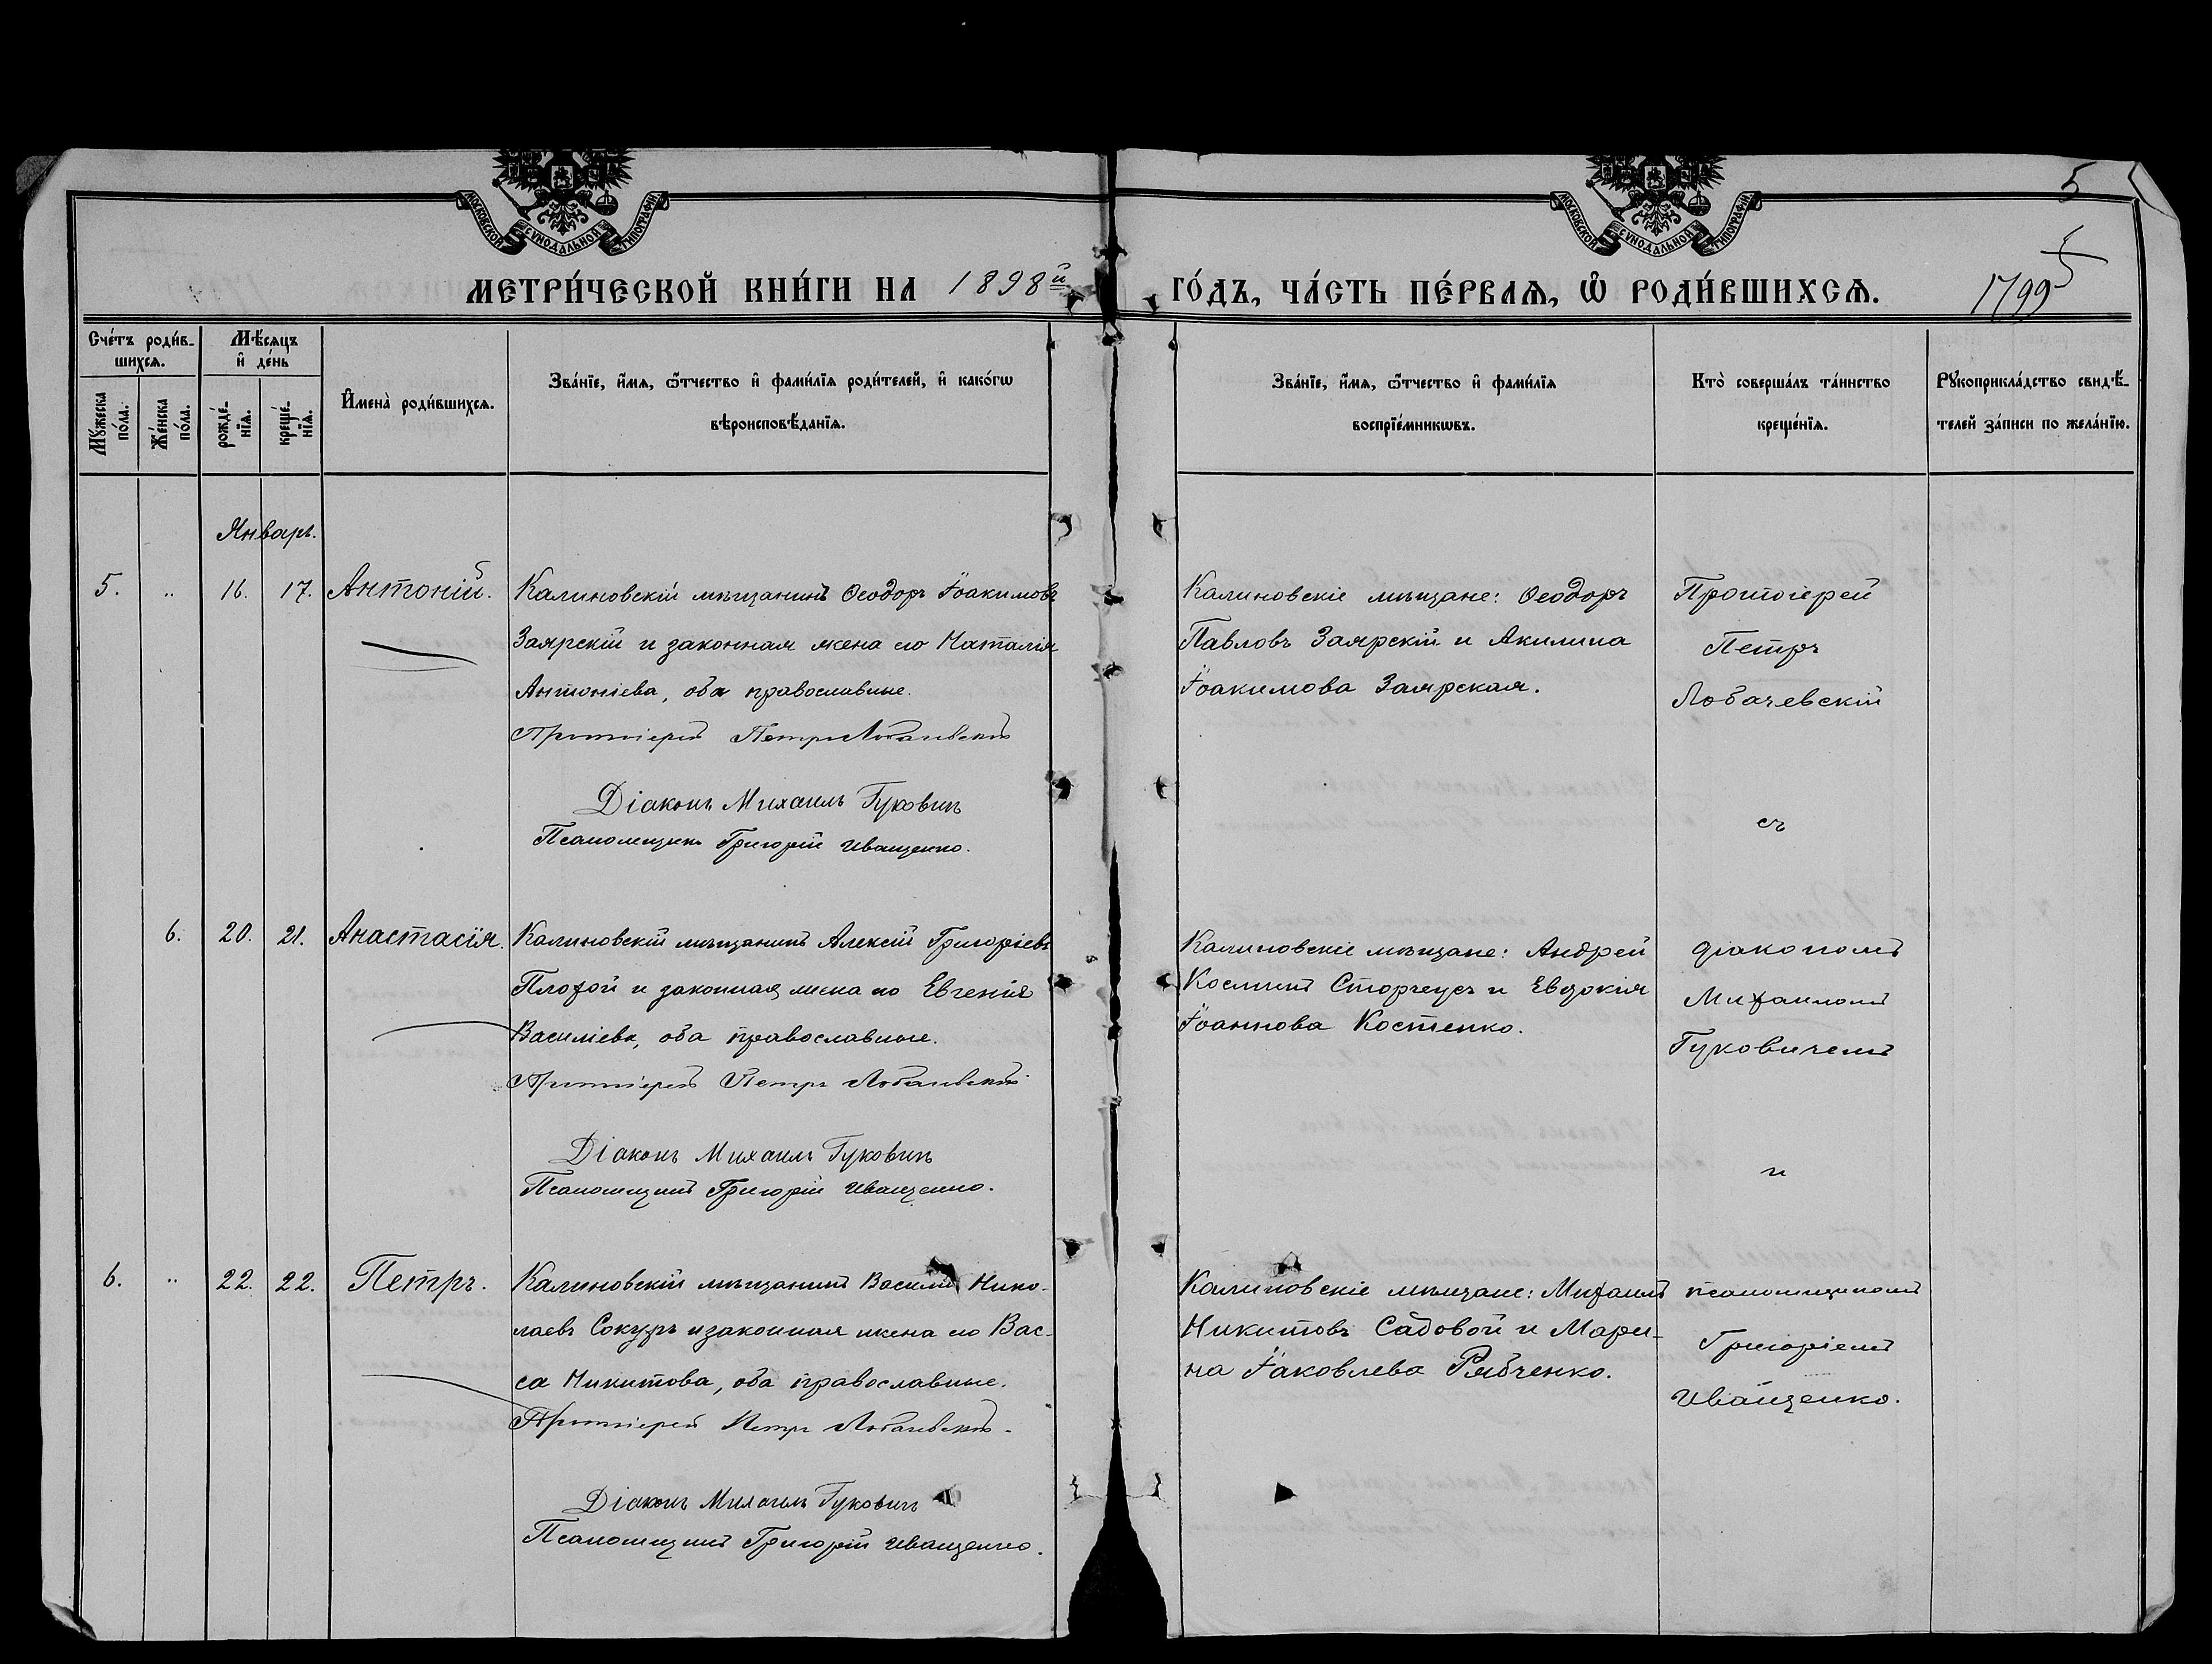 МОСКОВСКОЙ СѴНОДАЛЬНОЙ ТИПОГРАФІИ
МОСКОВСКОЙ СѴНОДАЛЬНОЙ ТИПОГРАФІИ
5
МЕТРИ́ЧЕСКОЙ КНИ́ГИ НА 1898й
ГО́ДЪ, ЧА́СТЬ ПЕ́РВАѦ, Ѡ҆ РОДИ́ВШИХСѦ.
1799
5
Сче́тъ роди́в-
шихсѧ.
Мꙋжеска
по́ла.
Же́нска
по́ла.
Мѣ́сяцъ
и҆ де́нь
рожде́-
нїѧ.
креще́-
нїѧ.
И҆мена̀ роди́вшихсѧ.
Зва́нїе, и҆́мѧ, ѻ҆́тчество и҆ фами́лїѧ роди́телей, и҆ како́гѡ
вѣроисповѣ́данїѧ.
Зва́нїе, и҆́мѧ, ѻ҆́тчество и҆ фами́лїѧ
воспрїе́мникѡвъ.
Кто̀ соверша́лъ та́инство
креще́нїѧ.
Рꙋкоприкла́дство свидѣ́-
телей за́писи по жела́нїю.
Январь.
5. " 16. 17. Антоній.
Калиновскій мѣщанинъ Ѳеодоръ Іоакимовъ
Заярскій и законная жена его Наталія
Антоніева, оба православные.
Протоіерей Петръ Лобачевскій
Діаконъ Михаилъ Гуковичъ
Псаломщикъ Григорій Иващенко.
Калиновскіе мѣщане: Ѳеодоръ
Павловъ Заярскій и Акилина
Іоакимова Заярская.
Протоіерей
Петръ
Лобачевскій
съ
6. 20. 21. Анастасія.
Калиновскій мѣщанинъ Алексій Григоріевъ
Плохой и законная жена его Евгенія
Василіева, оба православные.
Протоіерей Петръ Лобачевскій
Діаконъ Михаилъ Гуковичъ
Псаломщикъ Григорій Иващенко.
Калиновскіе мѣщане: Андрей
Косминъ Сторчеусъ и Евдокія
Іоаннова Костенко.
діакономъ
Михаиломъ
Гуковичемъ
и
6. " 22. 22. Петръ.
Калиновскій мѣщанинъ Василій Нико-
лаевъ Сокуръ и законная жена его Вас-
са Никитова, оба православные.
Протоіерей Петръ Лобачевскій.
Діаконъ Михаилъ Гуковичъ
Псаломщикъ Григорій Иващенко.
Калиновскіе мѣщане: Михаилъ
Никитовъ Садовой и Мари-
на Іаковлева Рябченко.
псаломщикомъ
Григоріемъ
Иващенко.